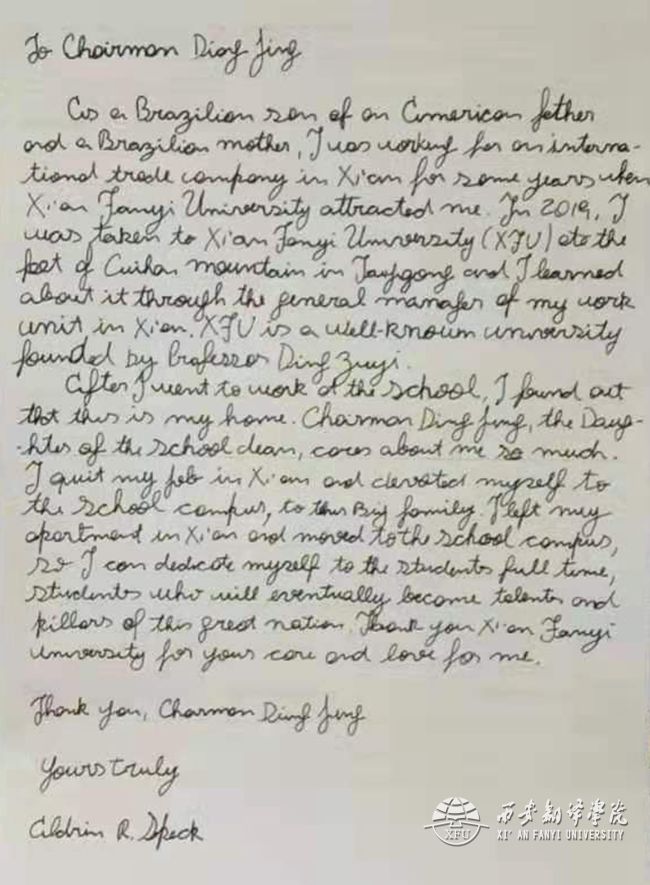 To Chairman Ding Jing
As a Brazilian son of an American father
and a Brazilian mother, I was working for an interna-
tional trade company in Xi'an for some years when
Xi'an Fanyi University attracted me. In 2019, I
was taken to Xi'an Fanyi University (XFU) at the
foot of Cuihua mountain in Taiyigong and I learned
about it through the general manager of my work
unit in Xi'an. XFU is a well-known university
founded by Professor Ding Zuyi.
After I went to work at the school, I found out
that this is my home. Charman Ding Jing, the Daug-
-hter of the school dean, cares about me so much.
I quit my job in Xi'an and devoted myself to
the school campus, to this Big family. I left my
apartment in Xi'an and moved to the school campus,
so I can dedicate myself to the students full time,
students who will eventually become talents and
pillars of this great nation. Thank you Xi'an Fanyi
university for your care and love for me.
Thank you, Charman Ding Jing
Yours truly
Aldrin R. Speck
西安翻译学院
XFU
XI' AN FANYI UNIVERSITY